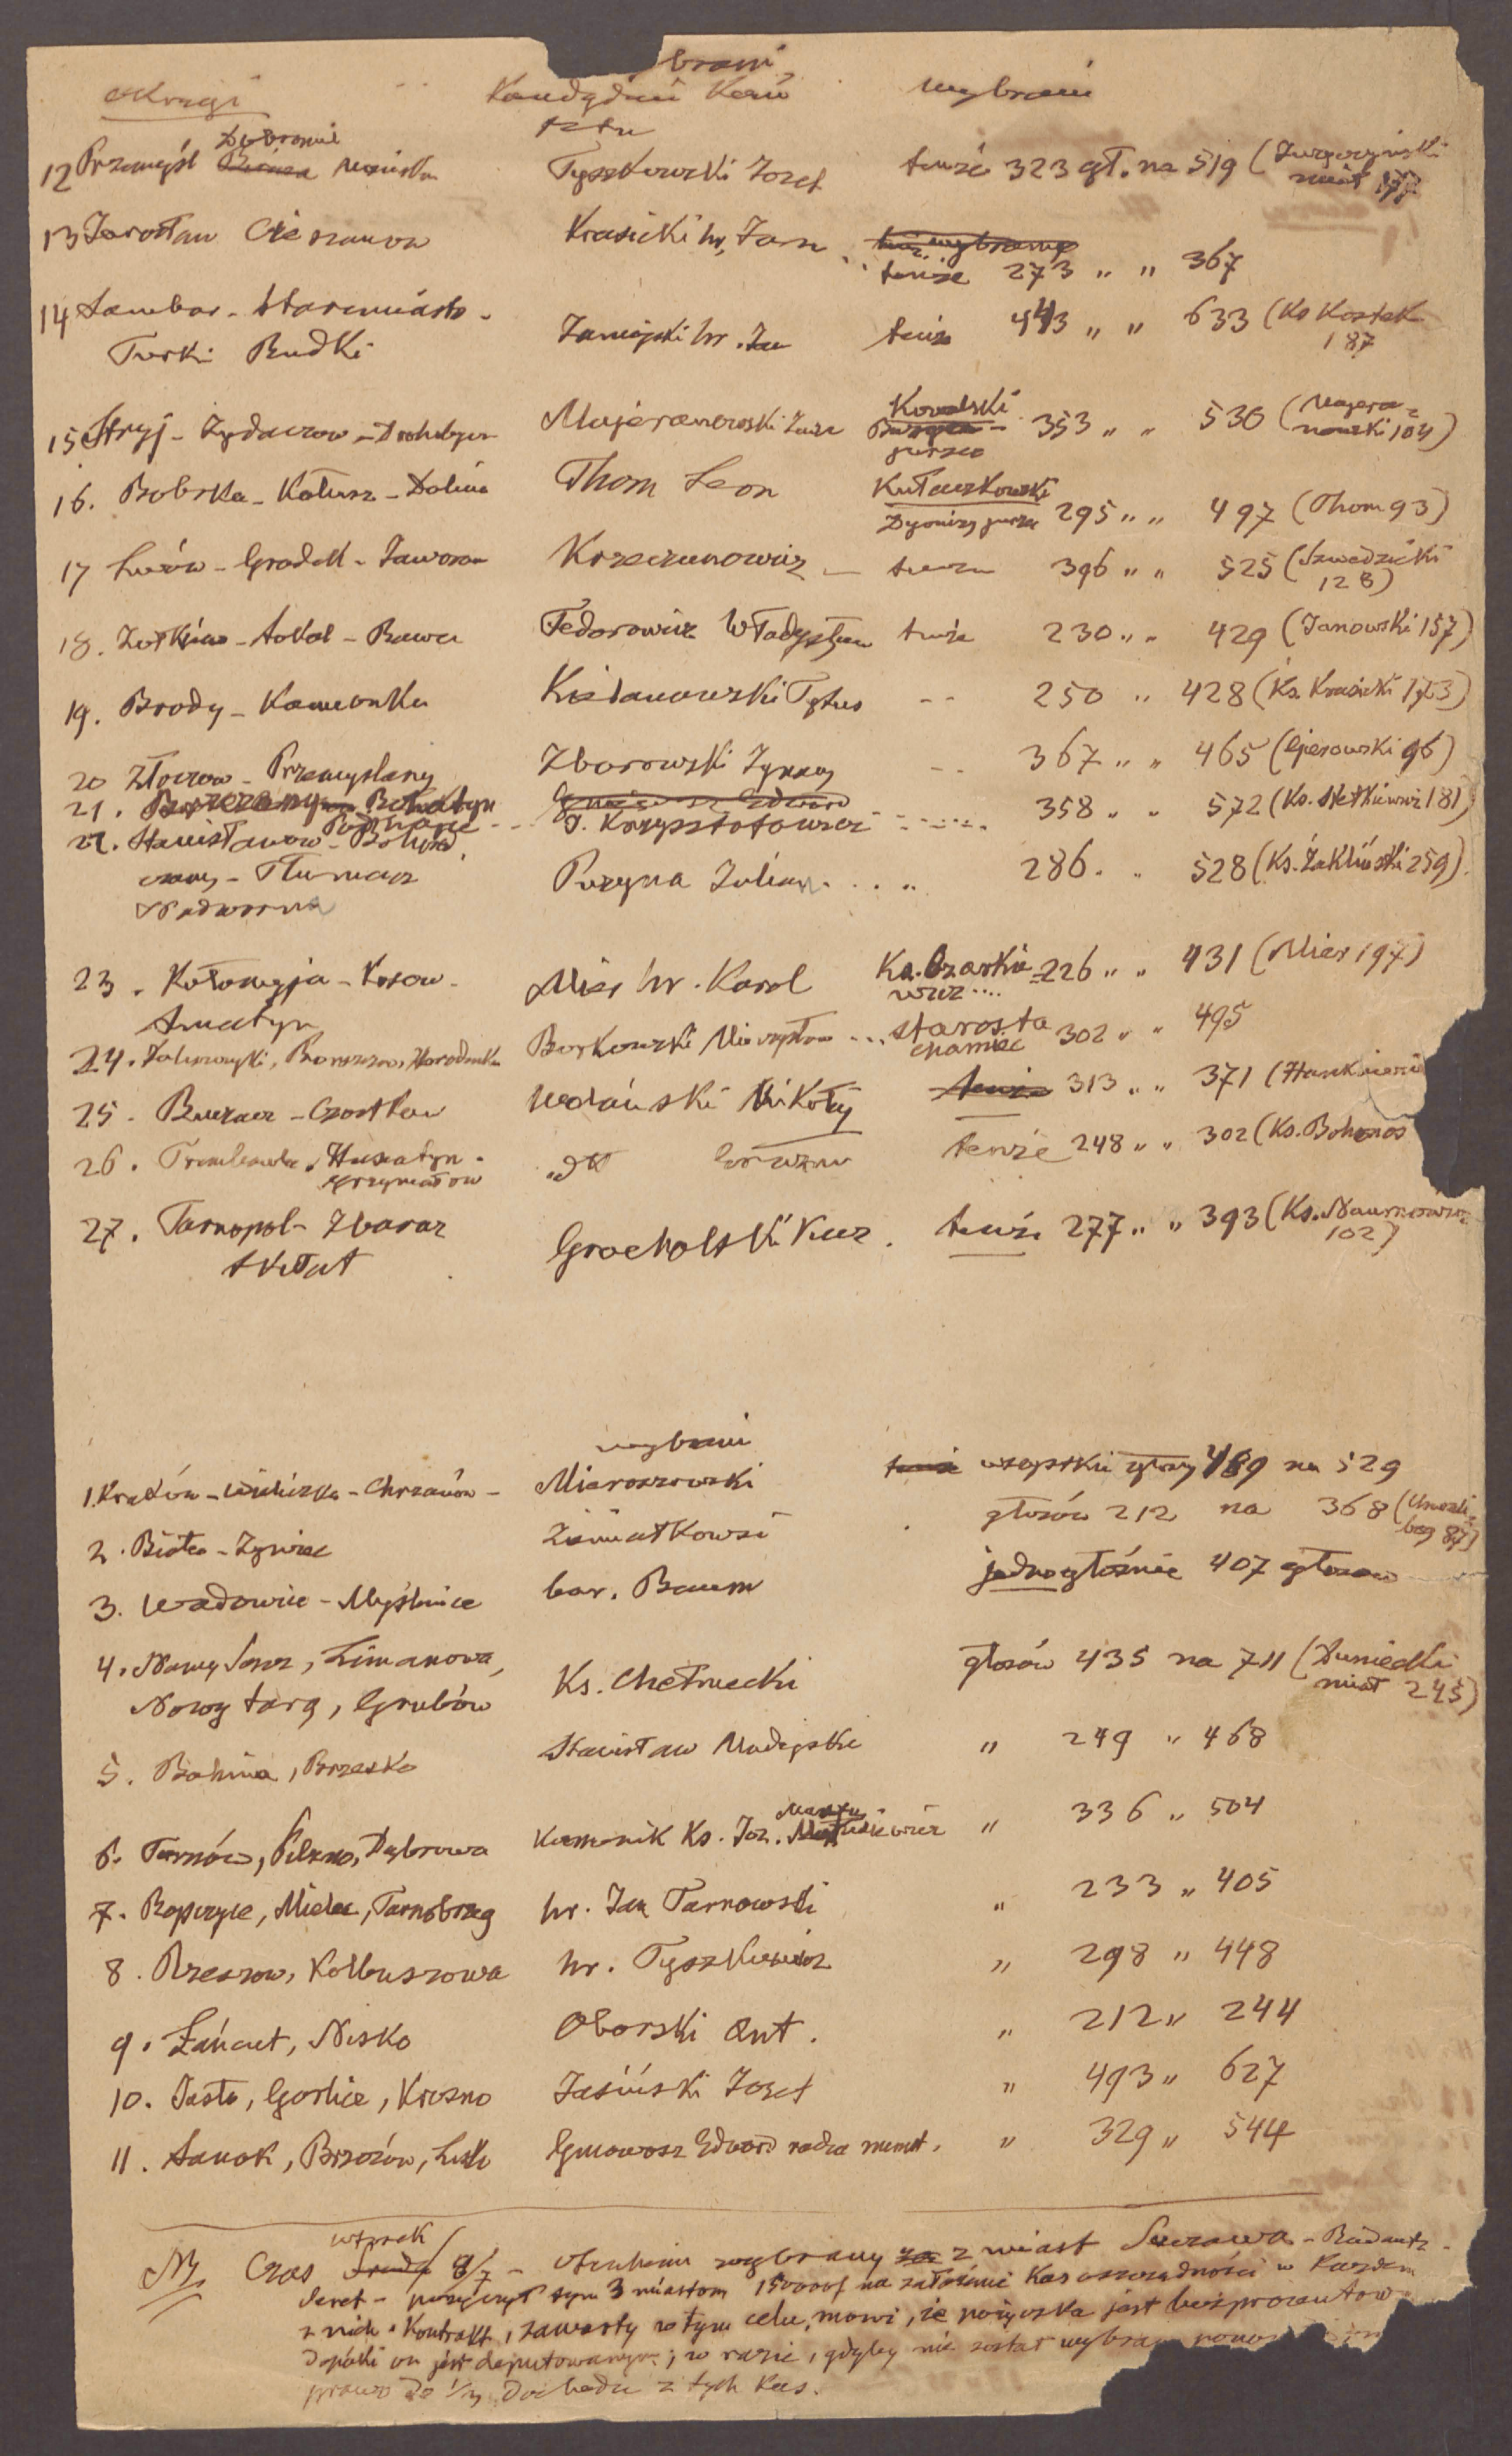 Okręgi wybrani
Kandydaci Kom wybrani
tetu
12 Przemyśl Dobromil Mościska Tyszkowski Józef tenże 323 gł. na 519 (Jurczyński miał 177
13 Jarosław Cieszanow Krasicki hr. Jan
tenże 273 " " 367
14 Sambor - Staremiasto - Zamojski hr. Jan tenże 443 " " 633 (Ks Kostek 187
Turki Rudki
15 Stryj - Zydaczow - Drohobycz Majeranowski Kowalski 353 " " 530 (Majeranowski 104)
16. Bobrka - Kałusz - Dolina Thom Leon Kułaczkowski Dyonizy 295 " " 497 (Thom 93)
17 Lwów - Gradek - Jaworow Krzeczunowicz - tenże 396 " " 525 (Szwedzicki 128)
18. Zołkiew - Sokal - Rawa Fedorowicz Władysław tenże 230 " " 429 (Janowski 157)
19. Brody - Kamionka Kielanowski Tytus -- 250 " 428 (Ks. Krasicki 173)
20 Złoczow - Przemyslany Zborowski Ignacy -- 367 " " 465 (96)
21. Brzezany Rohatyn
Podhajce J. Krzysztofowicz 358 " " 572 (Ks. Sietkiewicz 181)
22. Stanisławow - Bohorod
czany - Tłumacz Puzyna Julian . . " 286 . " 528 (Ks. Zakliński 259)
Nadworna
23. Kołomyja - Kosow - Mier hr. Karol Ks. Ozarkiewicz .... 226 " " 431 (Mier 197)
Sniatyn
24. Zaleszczyki, Borszczow, Horodenka Borkowski Mieczysław ... starosta Chamiec 302 " " 495
25 - Buczacz - Czortkow Wolański Mikołaj tenże 313 " " 371 (Hankiewi
26. Trembowla, Husiatyn - Grzymałow dt Erazm tenże 248 " " 302 (Ks. Bohonos
27. Tarnopol - Zbaraz Grocholski Kaz. tenże 277 " " 393 (Ks. Naumowicz 102)
Skałat
wybrani
1. Kraków - Wieliczka - Chrzanów - Mieroszowski tenże wszystkie głosy 489 na 529
2. Biała - Zywiec Ziemiałkowski głosów 212 na 368 (
87)
3. Wadowice - Myślenice bar. Baum jednogłośnie 407 głosow
4. Nowy Sącz, Limanowa, Ks. Chełmecki głosów 435 na 711 (Duniecki miał 245)
Nowy targ, Grybów
5. Bohnia, Brzesko Stanisław Madejski " 249 " 468
6. Tarnów, Pilzno, Dąbrowa Kanonik Ks. Joz. Martusiewicz " 336 " 504
7. Ropczyce, Mielec, Tarnobrzeg hr. Jan Tarnowski " 233 " 405
8. Rzeszow, Kolbuszowa hr. Tyszkiewicz " 298 " 448
9. Łańcut, Nisko Oborski Ant. " 212 " 244
10. Jasło, Gorlice, Krosno Jasiński Jozef " 493 " 627
11. Sanok, Brzozów, Lisko Gniewosz Edward radca minist. " 329 " 544
wtorek
NB Czas Środa 8/7 - wybrany za z miast Suczawa - Radautz -
Seret - pożyczył tym 3 miastom 15000 f na założenie Kas oszczędności w Każdem
z nich. Kontrakt, zawarty w tym celu, mowi, ze pożyczka jest bezprocentow
dopóki on jest deputowanym; w razie, gdyby nie został wybrany ponow
prawo do 1/3 Dochodu z tych Kas.